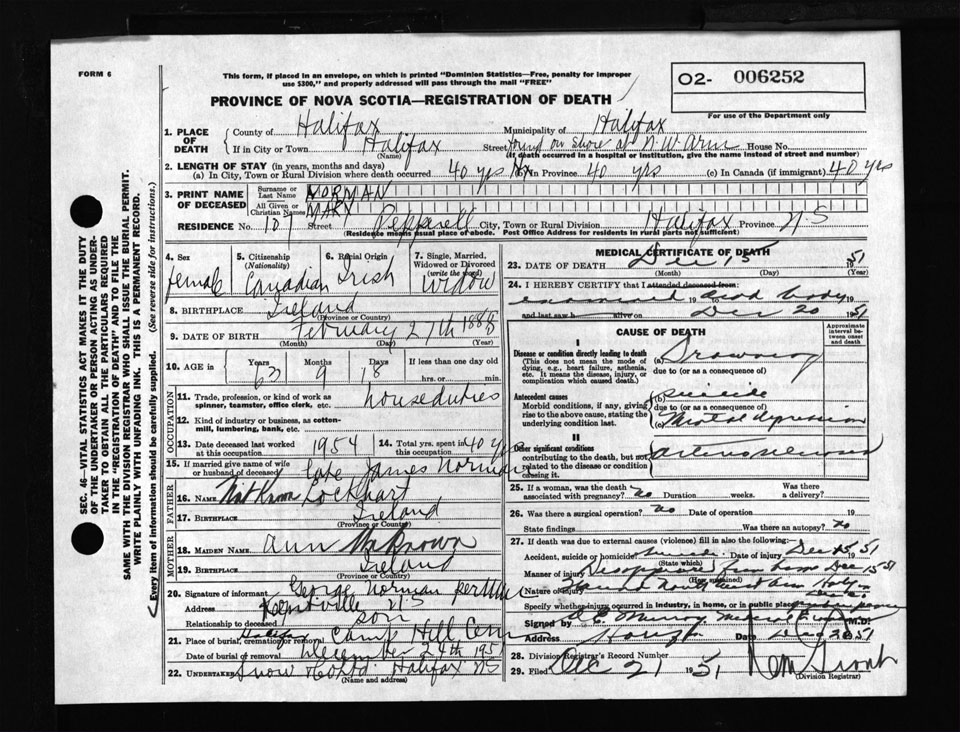 FORM 6
This form, if placed in an envelope, on which is printed "Dominion Statistics—Free, penalty for improper
use $300," and properly addressed will pass through the mail "FREE"
O2- 006252
For use of the Department only
PROVINCE OF NOVA SCOTIA—REGISTRATION OF DEATH
SEC. 46—VITAL STATISTICS ACT MAKES IT THE DUTY
OF THE UNDERTAKER OR PERSON ACTING AS UNDER-
TAKER TO OBTAIN ALL THE PARTICULARS REQUIRED
IN THE "REGISTRATION OF DEATH" AND TO FILE THE
SAME WITH THE DIVISION REGISTRAR WHO SHALL ISSUE THE BURIAL PERMIT.
WRITE PLAINLY WITH UNFADING INK. THIS IS A PERMANENT RECORD.
Every item of information should be carefully supplied. (See reverse side for instructions.)
1. PLACE OF DEATH
County of Halifax Municipality of Halifax
If in City or Town Halifax Street found on shore at N.W. Arm House No.
(Name) (If death occurred in a hospital or institution, give the name instead of street and number)
2. LENGTH OF STAY (in years, months and days)
(a) In City, Town or Rural Division where death occurred 40 yrs (b) in Province 40 yrs (c) In Canada (if immigrant) 40 yrs
3. PRINT NAME OF DECEASED
Surname or Last Name NORMAN
All Given or Christian Names MARY
RESIDENCE No. 107 Street Pepperell City, Town or Rural Division Halifax Province N.S
(Residence means usual place of abode. Post Office Address for residents in rural parts not sufficient)
4. Sex female
5. Citizenship (Nationality) Canadian
6. Racial Origin Irish
7. Single, Married, Widowed or Divorced (write the word) Widow
8. BIRTHPLACE Ireland
(Province or Country)
9. DATE OF BIRTH February 27th 1888
(Month) (Day) (Year)
10. AGE in Years 63 Months 9 Days 18 If less than one day old
hrs. or min.
OCCUPATION
11. Trade, profession, or kind of work as spinner, teamster, office clerk, etc. housedutes
12. Kind of industry or business, as cotton-mill, lumbering, bank, etc.
13. Date deceased last worked at this occupation 1954 14. Total yrs. spent in this occupation 40 yrs
15. If married give name of wife or husband of deceased Late James Norman
FATHER
16. NAME Not Known Lockhart
17. BIRTHPLACE Ireland
(Province or Country)
MOTHER
18. MAIDEN NAME Ann Unknown
19. BIRTHPLACE Ireland
(Province or Country)
20. Signature of informant George Norman per
Address Kentville N.S
Relationship to deceased son
21. Place of burial, cremation or removal Halifax Camp Hill Cem
Date of burial or removal December 24th 195
22. UNDERTAKER Snow Halifax NS
(Name and address)
MEDICAL CERTIFICATE OF DEATH
23. DATE OF DEATH Dec 15 1951
(Month) (Day) (Year)
24. I HEREBY CERTIFY that I attended deceased from
examined 19 dead body 19
and last saw h alive on Dec 20 1951
CAUSE OF DEATH
Approximate interval between onset and death
I
Disease or condition directly leading to death
(This does not mean the mode of dying, e.g., heart failure, asthenia, etc. It means the disease, injury, or complication which caused death.)
(a) Drowning
due to (or as a consequence of)
Antecedent causes
Morbid conditions, if any, giving rise to the above cause, stating the underlying condition last.
(b) Suicide
due to (or as a consequence of)
(c) Mental depression
II
Other significant conditions
contributing to the death, but not related to the disease or condition causing it.
25. If a woman, was the death associated with pregnancy? no Duration weeks. Was there a delivery?
26. Was there a surgical operation? no Date of operation 19
State findings Was there an autopsy? no
27. If death was due to external causes (violence) fill in also the following:—
Accident, suicide or homicide Suicide Date of injury Dec 15 1951
(State which)
Manner of injury Disappeared from home Dec 15 51
(How sustained)
Nature of injury Found North West Arm
Specify whether injury occurred in industry, in home, or in public place
Signed by Murray Medical M.D.
Address Date Dec 20 51
28. Division Registrar's Record Number
29. Filed Dec 21 1951
(Division Registrar)